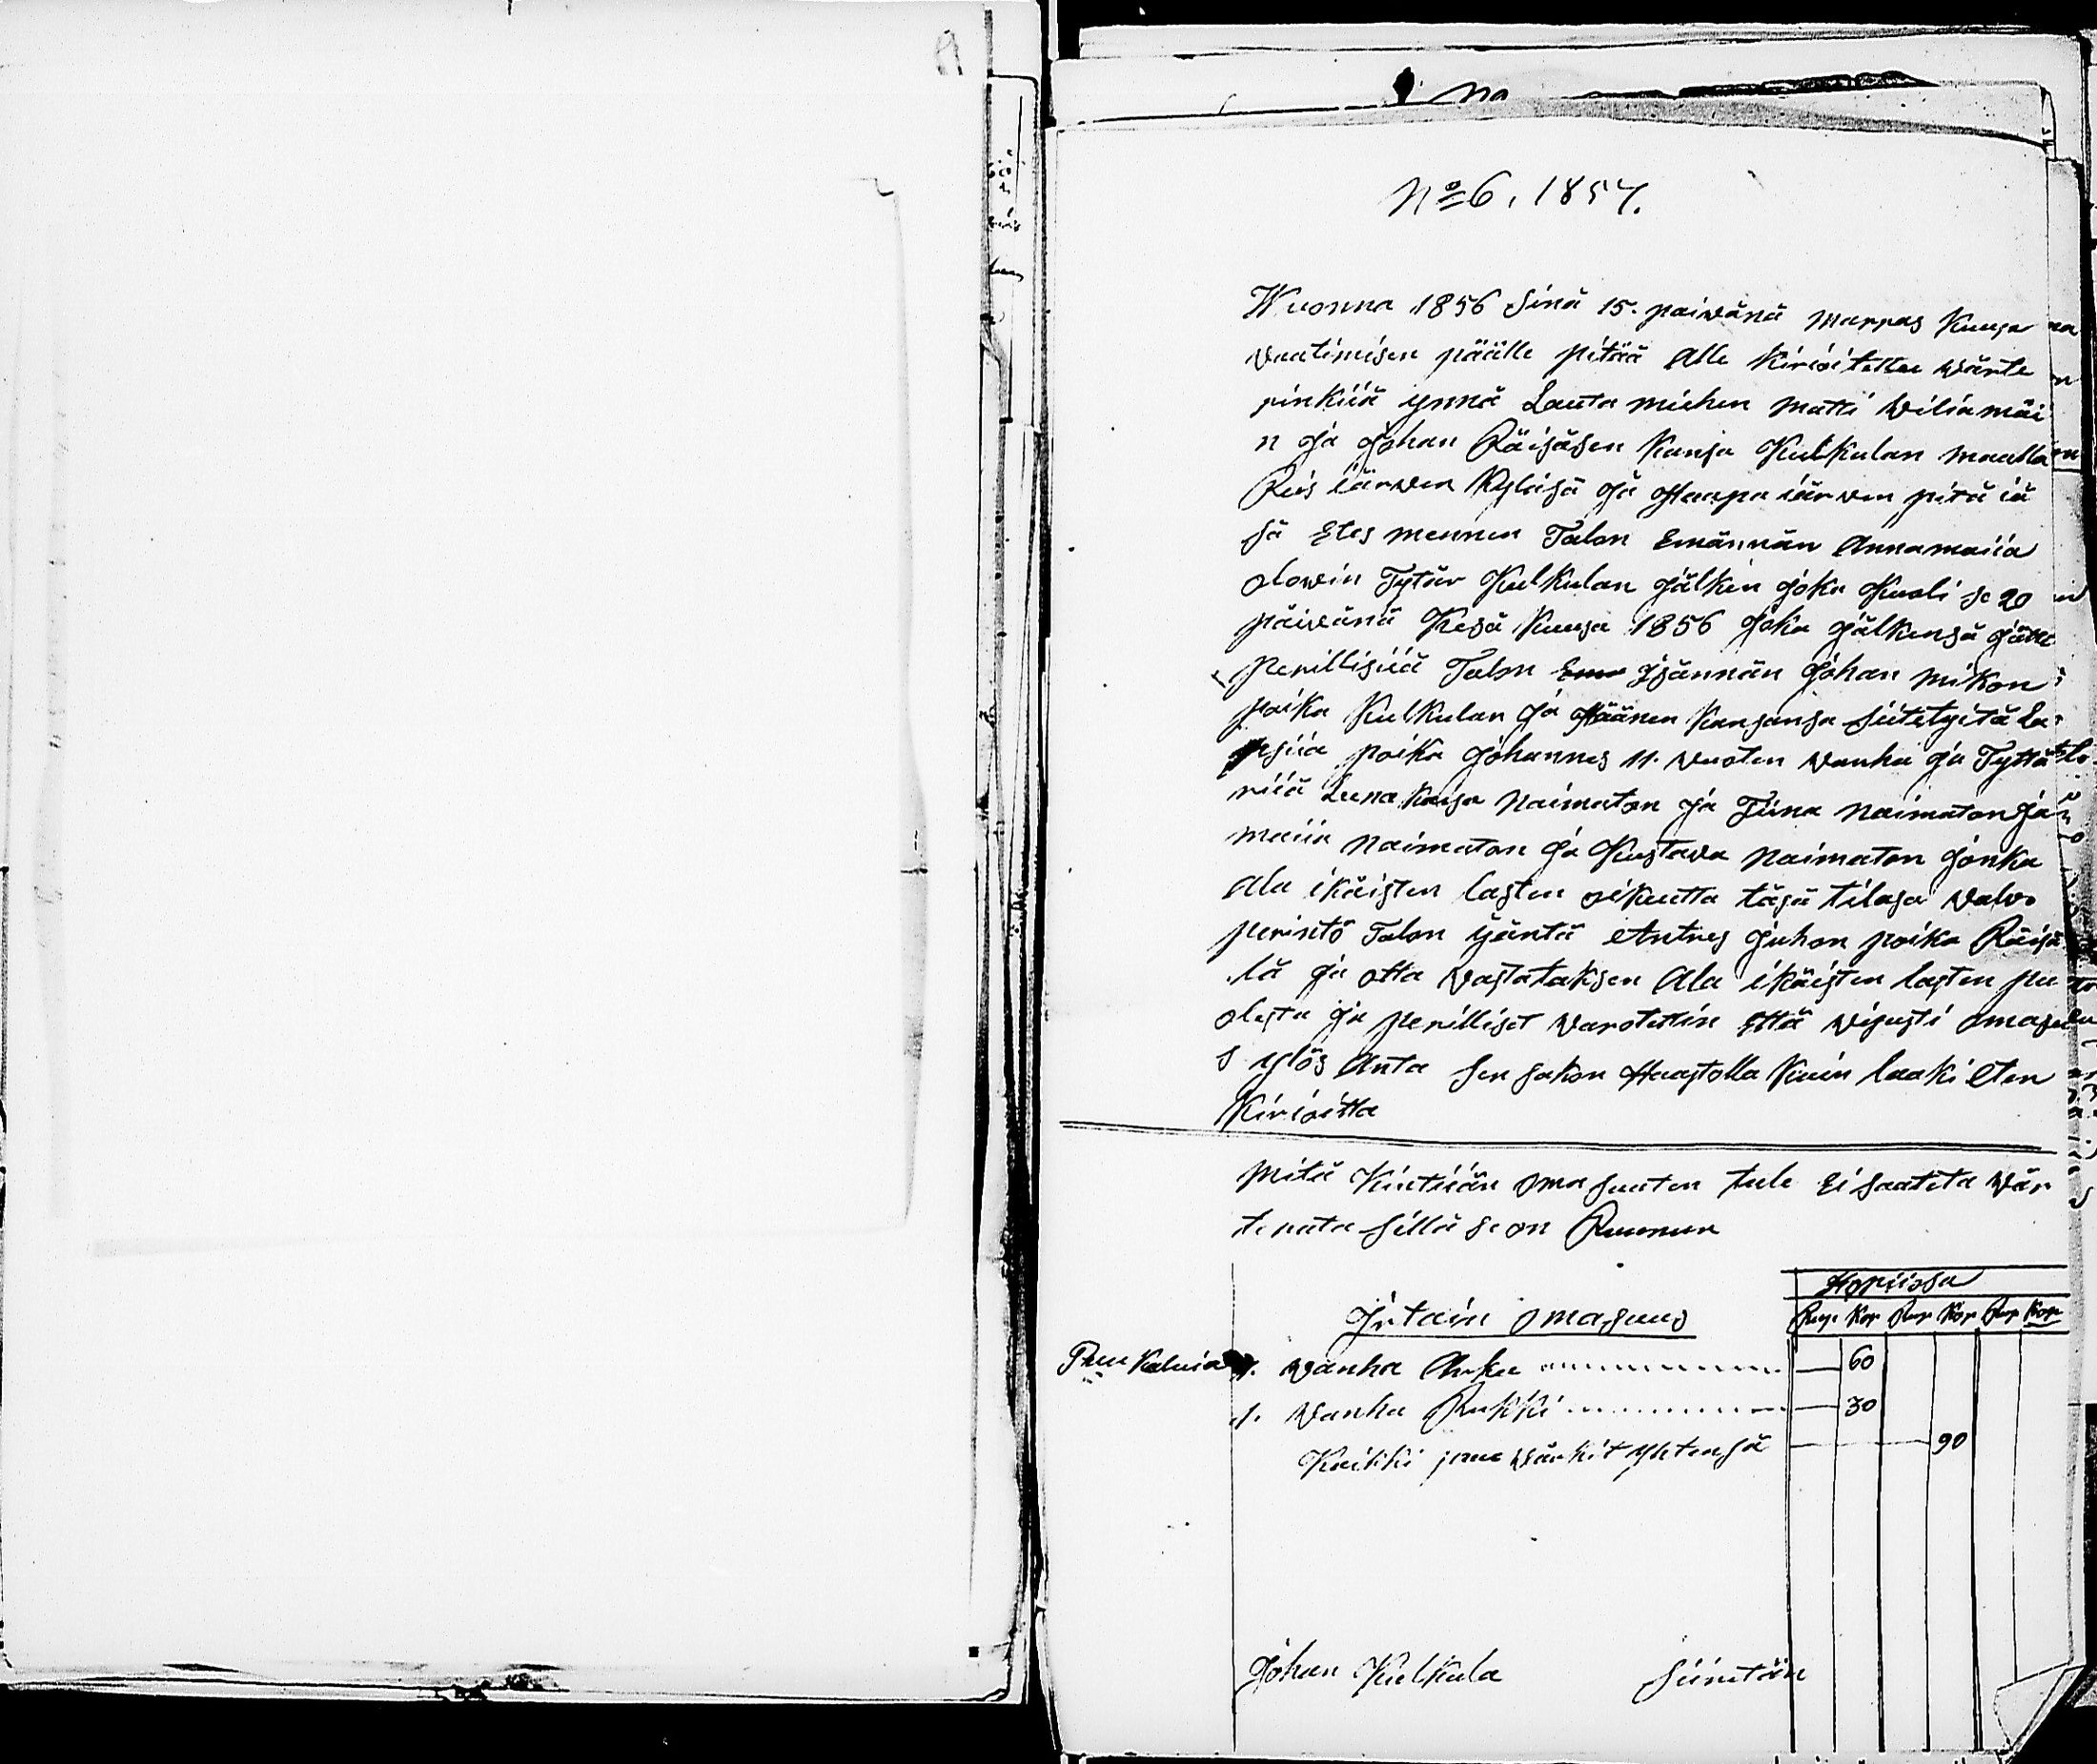 No 6, 1857.
Wuonna 1856 Sinä 15. paiwänä marras Kuusa
vaatimisen päälle pitää alle Kirioitettu wärte
rinkiiä ynnä Lauta miehen matti wiliamäi
n ja Johan Räisäsen kansa Kulkulan maalla
Reis iärwen Kyläsä ja Haapa iärwen pitä iä
sä Etes mennen Talon Emännän Annamaiia
olowin Tytär Kulkulan jälkin joka Kuoli se 20
päivänä Kesä kuusa 1856 joka jälkensä jätti
perillisiiä Talon Isännän Johan mikon
poika Kulkulan ja Häänen kansansa siitetyitä La
psiia poika Johannes 11. vuoten vanha ja Tyttä
riiä Leena kaisa naimaton ja Tiina naimaton ja
maiia naimaton ja Kustava naimaton jonka
ala ikäisten lasten oikeutta täsä tilasa valvo
perintö Talon isäntä Antres Juhon poika Räisä
lä ja otta vastataksen ala ikäisten lasten pu
olesta ja perilliset varotettin että visusti omasuu
s ylös anta sen jakon Haastolla kuin laaki eten
kirioitta
mitä Kiintiiän oma suuten tule Ei saateta wär
terata sillä se on Ruunun
Hopiiasa
Irtain omasuus
Rup. Kop Rup Kop Rup Kop
Puu Kaluia 1. wanha Arkku 60
1. wanha Rukki 30
Kaikki puu värkit yhtensä 90
Johan Kulkula